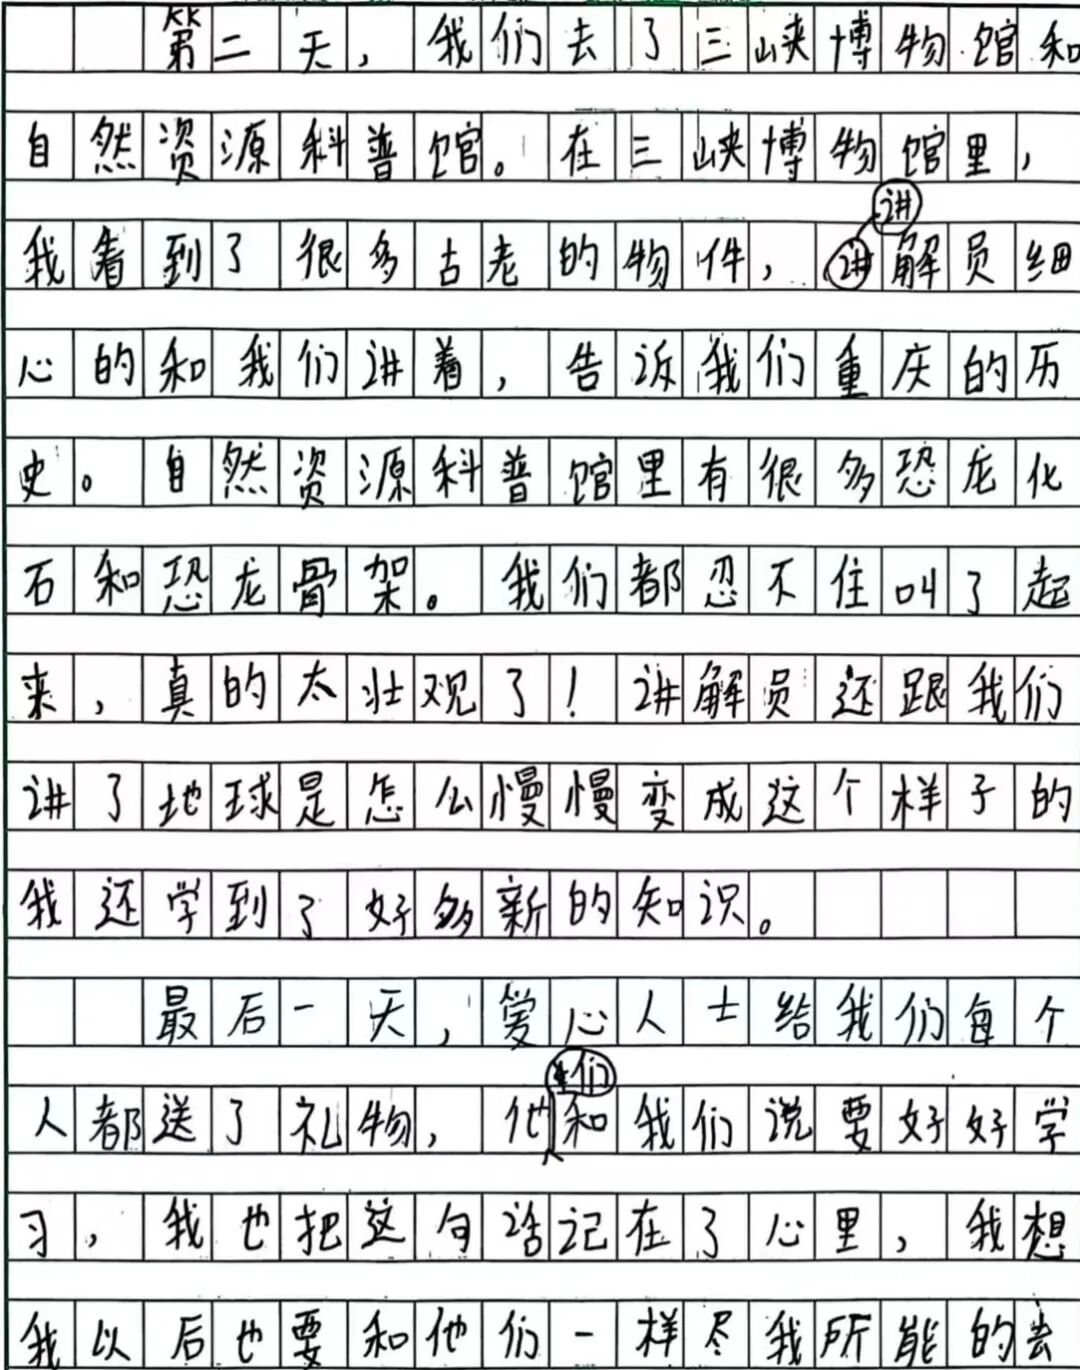 第二天，我们去了三峡博物馆和
自然资源科普馆。在三峡博物馆里，
讲
我看到了很多古老的物件，讲解员细
心的和我们讲着，告诉我们重庆的历
史。自然资源科普馆里有很多恐龙化
石和恐龙骨架。我们都忍不住叫了起
来，真的太壮观了！讲解员还跟我们
讲了地球是怎么慢慢变成这个样子的
我还学到了好多新的知识。
最后一天，爱心人士给我们每个
们
人都送了礼物，他和我们说要好好学
习，我也把这句话记在了心里，我想
我以后也要和他们一样尽我所能的去